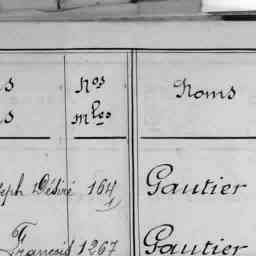 s Nos Noms
s Mles
eph Désiré 164 Gautier
1
François 1267 Gautier